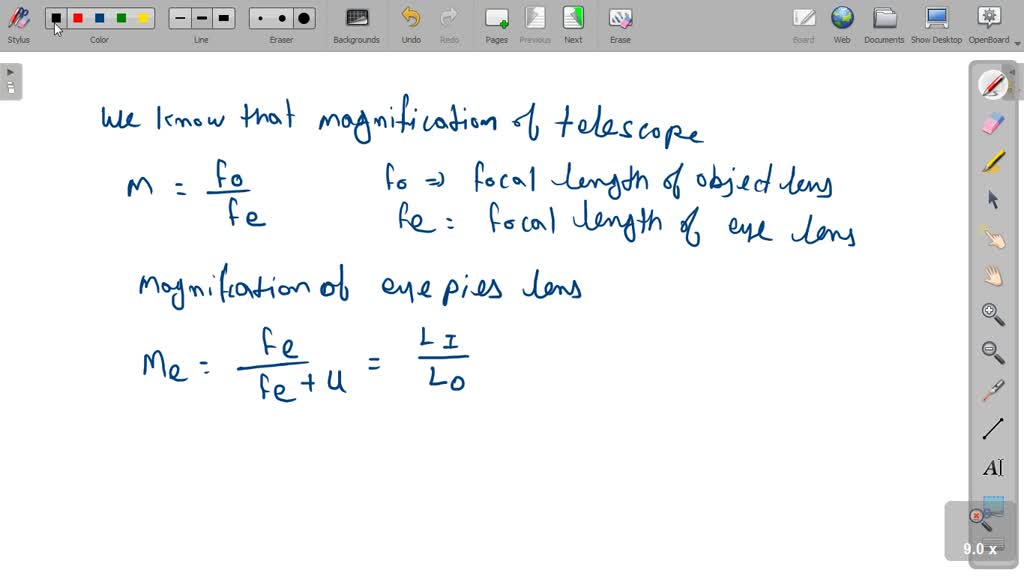 Stylus Color Line Eraser Backgrounds Undo Redo Pages Previous Next Erase Board Web Documents Show Desktop OpenBoard
We know that magnification of telescope
M = fo / fe fo => focal length of object lens
fe = focal length of eye lens
Magnification of eye pies lens
Me = fe / fe + u = LI / LO
AI
9.0 x